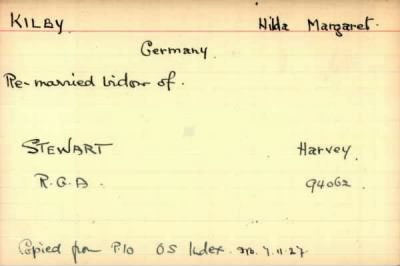 KILBY. Hilda Margaret.
Germany
Re-married widow of.
STEWART Harvey.
R.G.A. 94062.
Copied from P.10 OS Index. 7.11.27